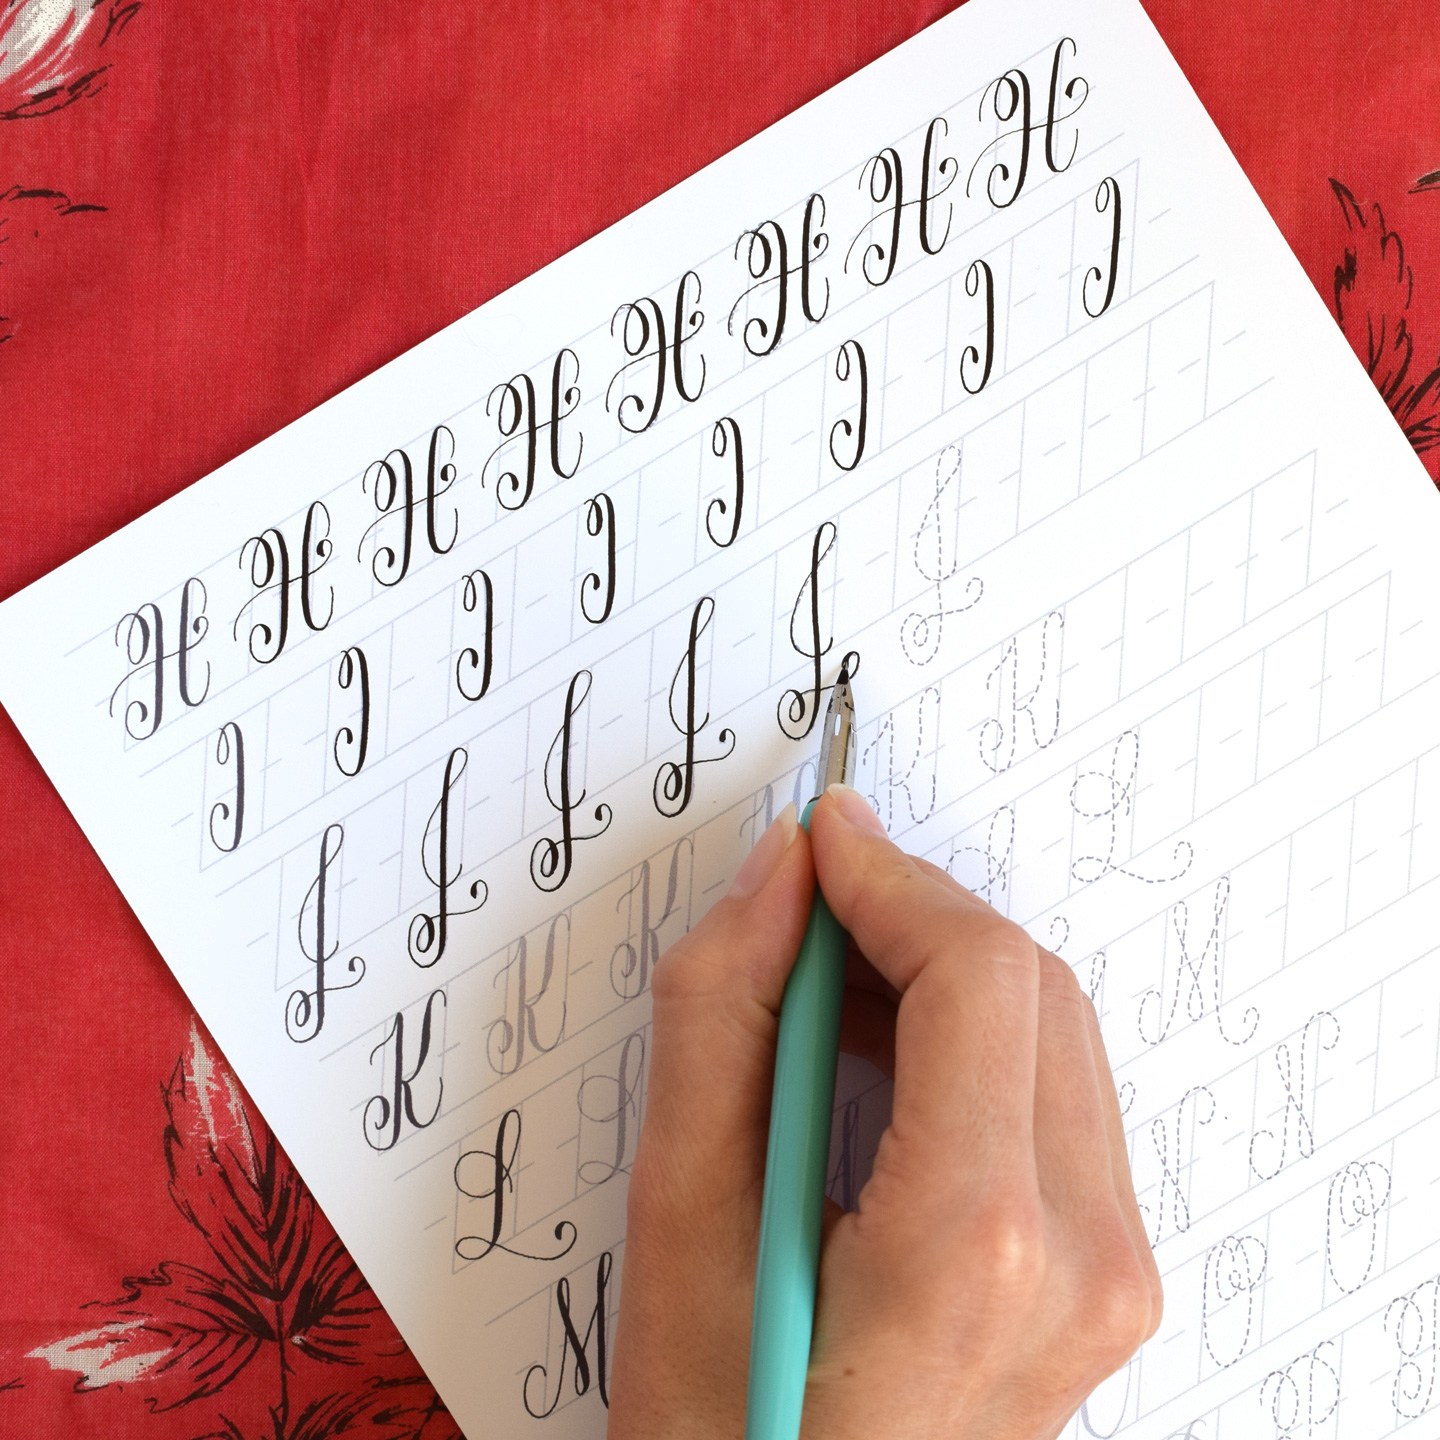 H H H H H H H H
I I I I I I I I
J J J J J J
K K K K K K
L L L L
M M
N N
O O
P P